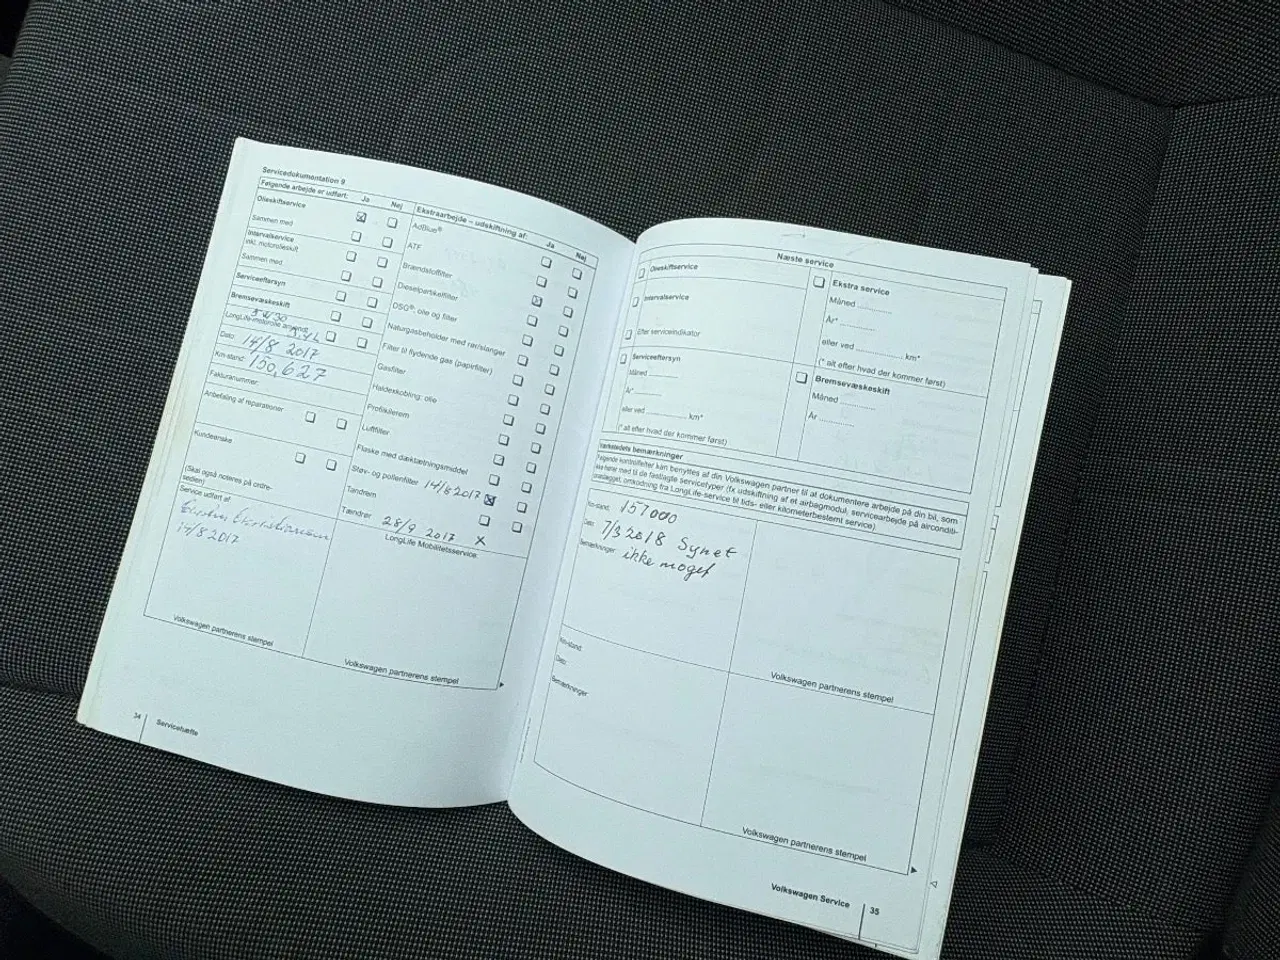 Servicedokumentation 9
Følgende arbejde er udført: Ja Nej
Olieskiftservice
Sammen med
Intervalservice
inkl. motorolieskift
Sammen med
Serviceeftersyn
Bremsevæskeskift
5W/30
LongLife-motorolie anvendt
Dato: 14/8 2017
Km-stand: 150,627
Fakturanummer:
Anbefaling af reparationer
Kundeønske
(Skal også noteres på ordre-
sedlen)
Service udført af
14/8 2017
Volkswagen partnerens stempel
Ekstraarbejde – udskiftning af: Ja Nej
AdBlue®
ATF
Brændstoffilter
Dieselpartikelfilter
DSG®, olie og filter
Naturgasbeholder med rør/slanger
Filter til flydende gas (papirfilter)
Gasfilter
Haldexkobling: olie
Profilkilerem
Luftfilter
Flaske med dæktætningsmiddel
Støv- og pollenfilter 14/8 2017
Tandrem
Tændrør 28/9 2017 X
LongLife Mobilitetsservice:
Volkswagen partnerens stempel
34 Servicehæfte
Næste service
Olieskiftservice
Intervalservice
Efter serviceindikator
Serviceeftersyn
Måned ..............
År* ..............
eller ved .................... km*
(* alt efter hvad der kommer først)
Ekstra service
Måned ..............
År* ..............
eller ved .................... km*
(* alt efter hvad der kommer først)
Bremsevæskeskift
Måned ..............
År ..............
Værkstedets bemærkninger
Følgende kontrolfelter kan benyttes af din Volkswagen partner til at dokumentere arbejde på din bil, som
ikke hører med til de fastlagte servicetyper (fx udskiftning af et airbagmodul, servicearbejde på aircondi-
anlægget, omkodning fra LongLife-service til tids- eller kilometerbestemt service)
Km-stand: 157000
Dato: 7/3 2018 Synet
Bemærkninger: ikke noget
Volkswagen partnerens stempel
Km-stand:
Dato:
Bemærkninger:
Volkswagen partnerens stempel
Volkswagen Service 35